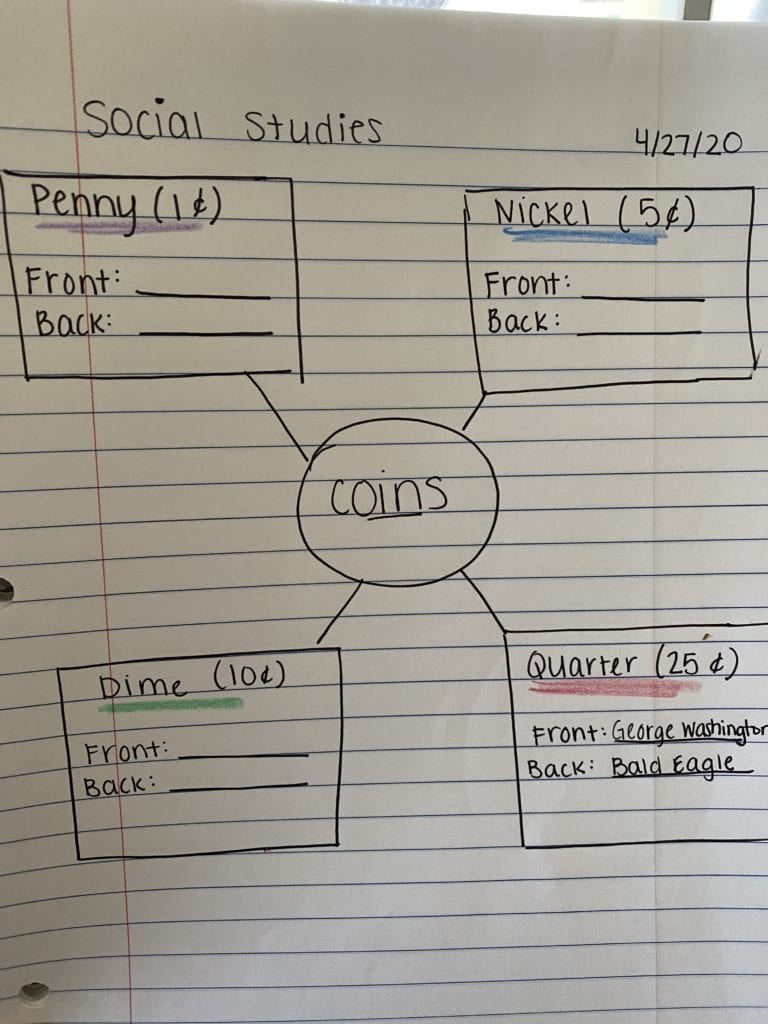 Social Studies
4/27/20
Penny (1¢)
Front:
Back:
Nickel (5¢)
Front:
Back:
coins
Dime (10¢)
Front:
Back:
Quarter (25¢)
Front: George Washington
Back: Bald Eagle